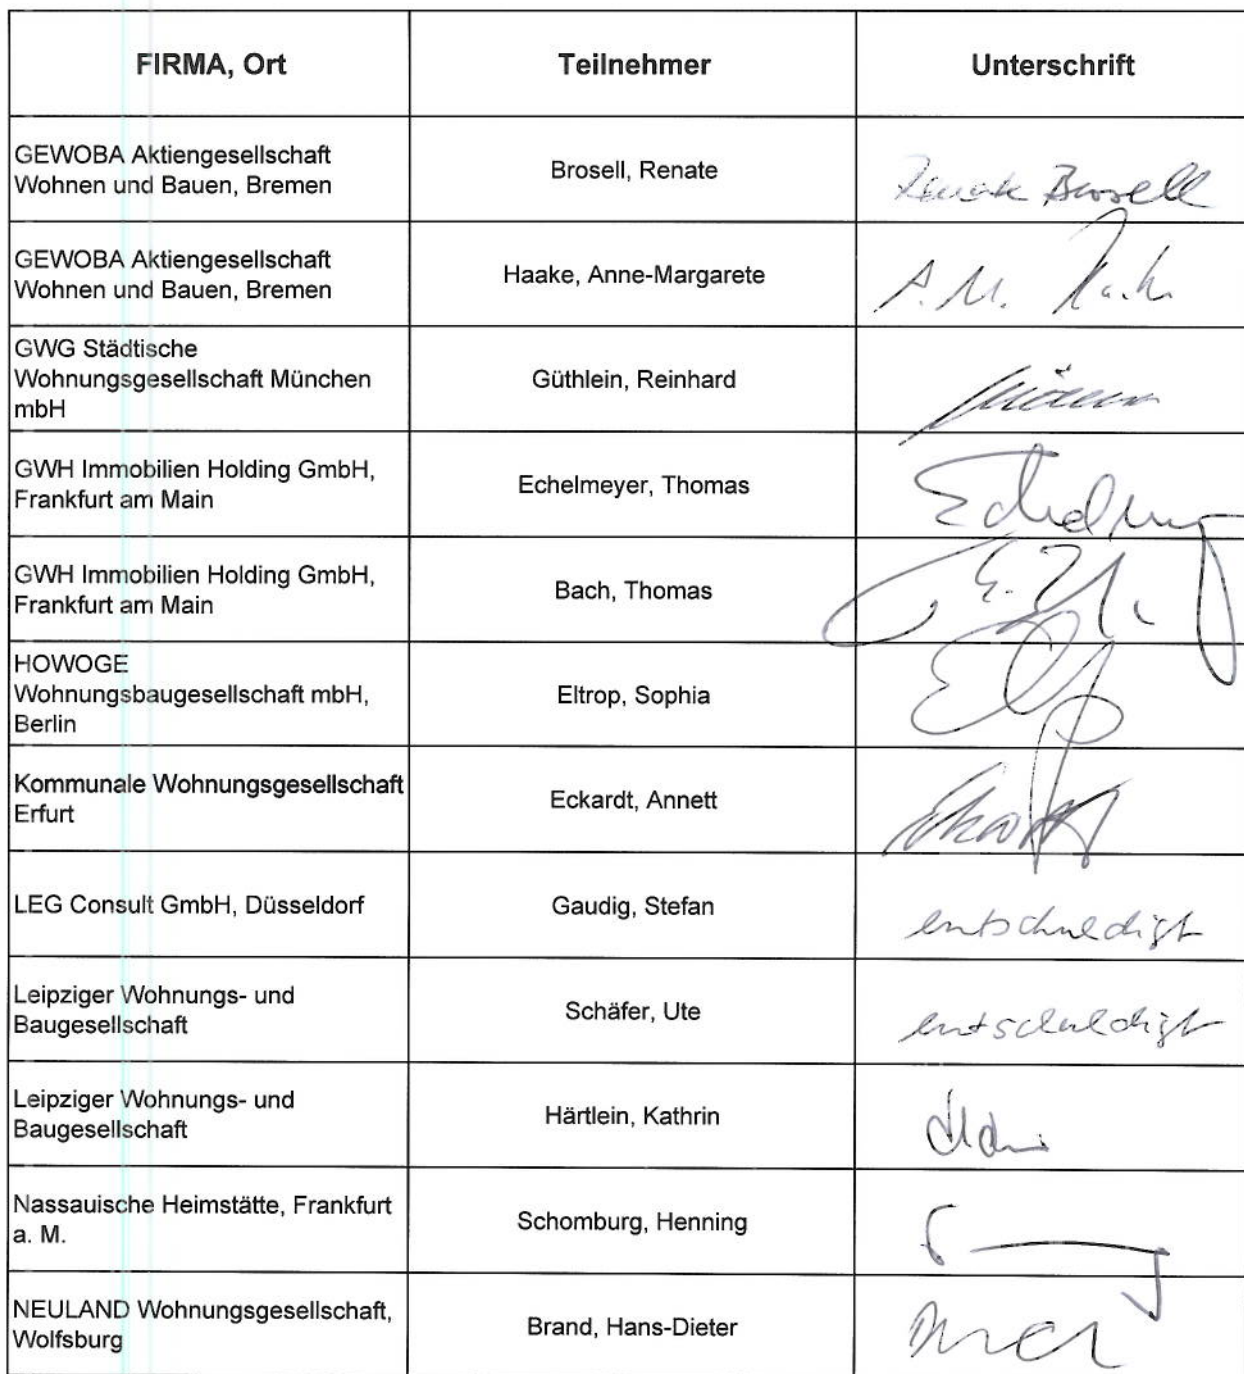 FIRMA, Ort
Teilnehmer
Unterschrift
GEWOBA Aktiengesellschaft
Wohnen und Bauen, Bremen
Brosell, Renate
Renate Brosell
GEWOBA Aktiengesellschaft
Wohnen und Bauen, Bremen
Haake, Anne-Margarete
A. M. Haake
GWG Städtische
Wohnungsgesellschaft München
mbH
Güthlein, Reinhard
GWH Immobilien Holding GmbH,
Frankfurt am Main
Echelmeyer, Thomas
GWH Immobilien Holding GmbH,
Frankfurt am Main
Bach, Thomas
HOWOGE
Wohnungsbaugesellschaft mbH,
Berlin
Eltrop, Sophia
Kommunale Wohnungsgesellschaft
Erfurt
Eckardt, Annett
LEG Consult GmbH, Düsseldorf
Gaudig, Stefan
entschuldigt
Leipziger Wohnungs- und
Baugesellschaft
Schäfer, Ute
entschuldigt
Leipziger Wohnungs- und
Baugesellschaft
Härtlein, Kathrin
Nassauische Heimstätte, Frankfurt
a. M.
Schomburg, Henning
NEULAND Wohnungsgesellschaft,
Wolfsburg
Brand, Hans-Dieter